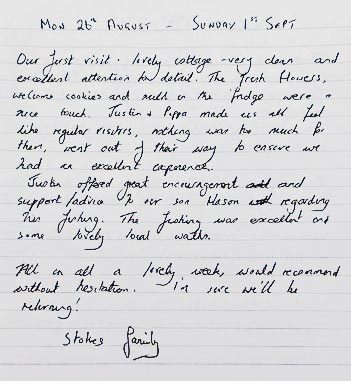 MON 26th AUGUST - SUNDAY 1st SEPT
Our first visit. lovely cottage - very clean and
excellent attention to detail. The fresh flowers,
welcome cookies and milk in the fridge were a
nice touch. Justin & Pippa made us all feel
like regular visitors, nothing was too much for
them, went out of their way to ensure we
had an excellent experience.
Justin offered great encouragement and
support/advice to our son Mason regarding
his fishing. The fishing was excellent and
some lovely local walks.
All in all a lovely week, would recommend
without hesitation. I'm sure we'll be
returning!
Stokes family